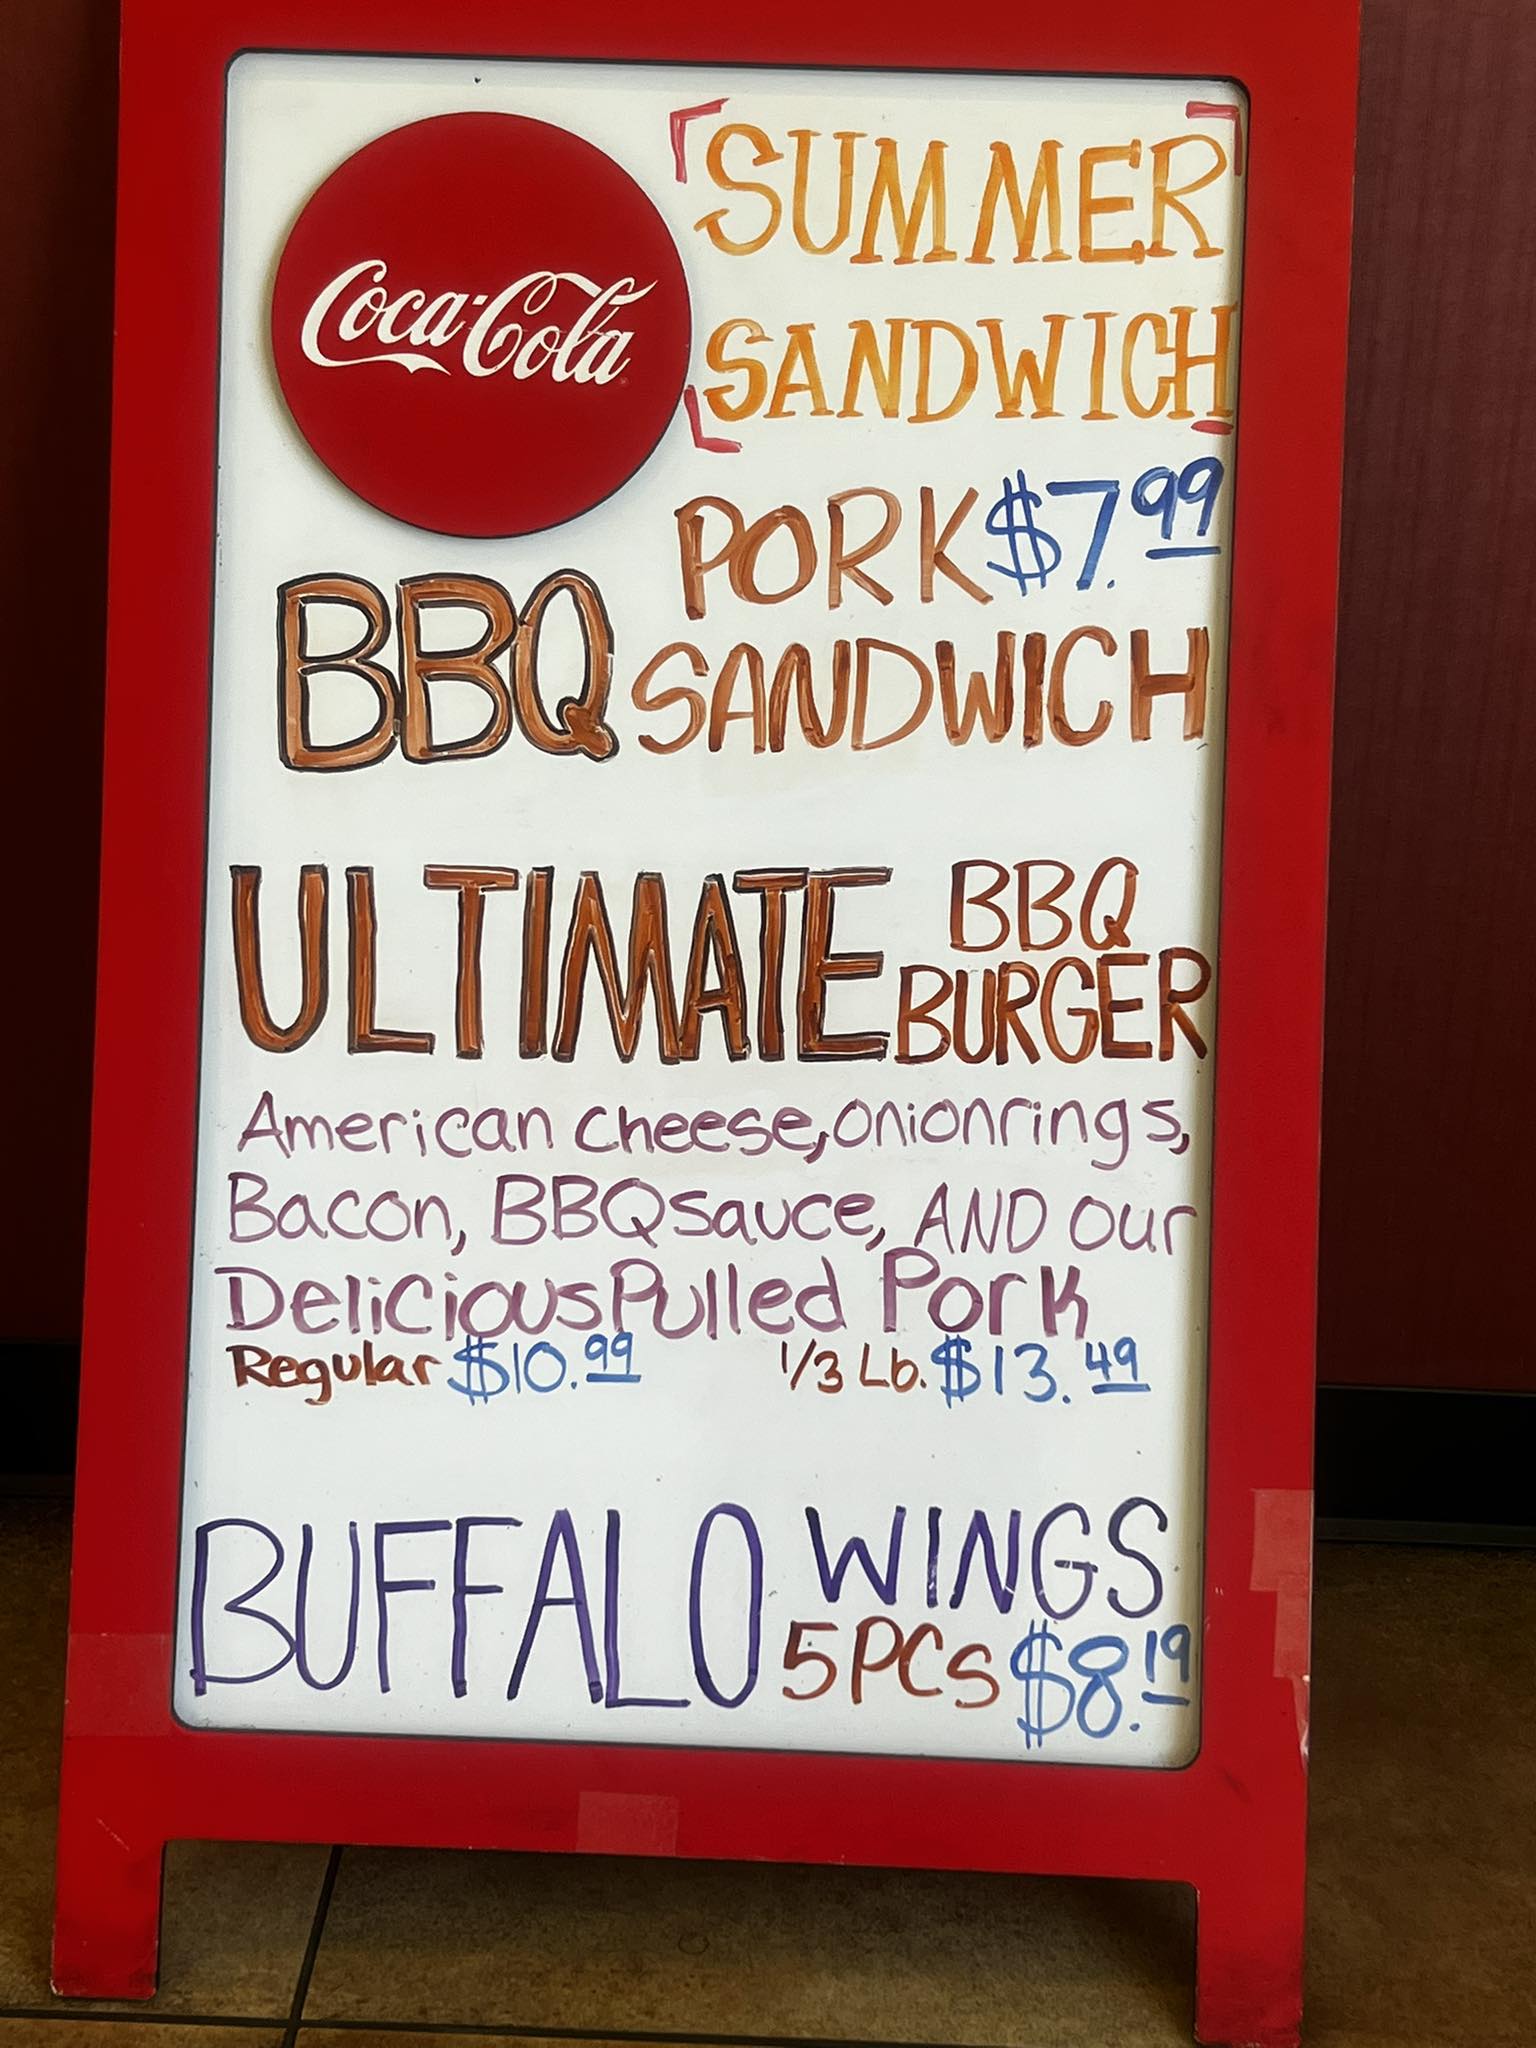 Coca-Cola
SUMMER
SANDWICH
PORK $7.99
BBQ SANDWICH
ULTIMATE BBQ BURGER
American cheese, onion rings,
Bacon, BBQ sauce, AND our
Delicious Pulled Pork
Regular $10.99 1/3 Lb. $13.49
BUFFALO WINGS
5PCs $8.19